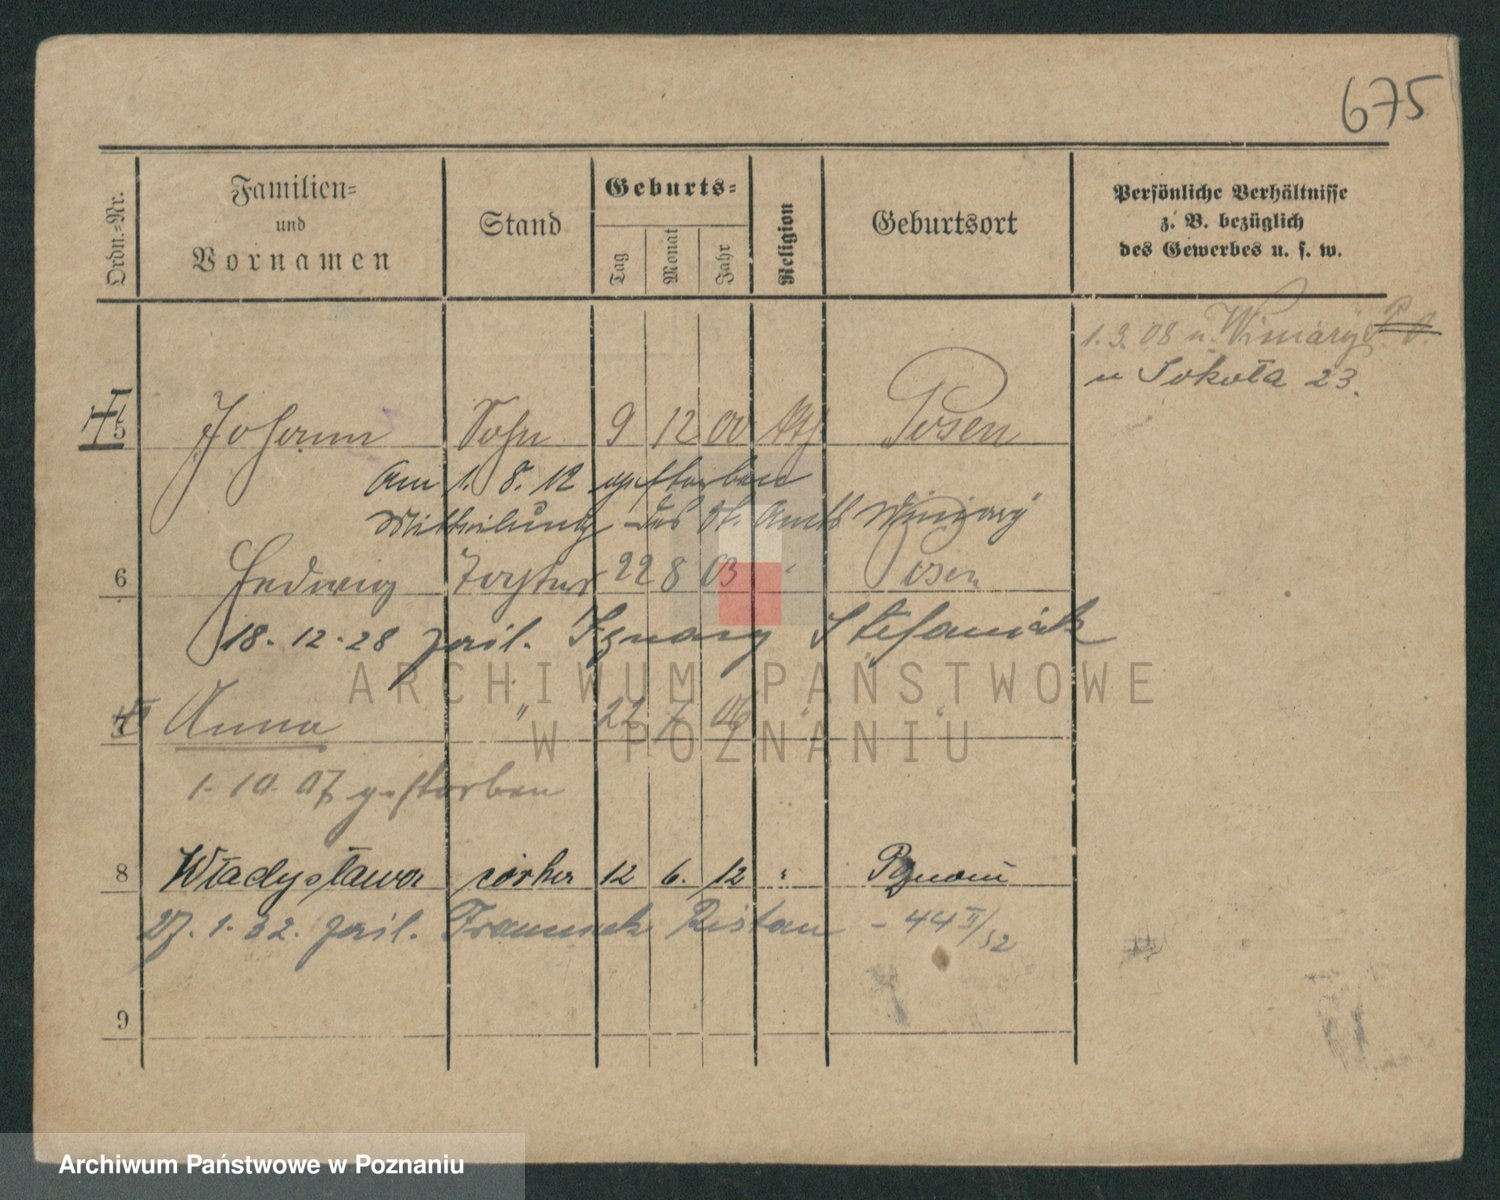 675
Ordn.-Nr.
Familien-
und
Vornamen
Stand
Geburts-
Tag
Monat
Jahr
Religion
Geburtsort
Persönliche Verhältnisse
z. B. bezüglich
des Gewerbes u. s. w.
1. 3. 08 n. Winiary
n Sokoła 23.
5 Johann Sohn 9 12 00 kth Posen
Am 1. 8. 12 gestorben
Mittheilung des St. Amts Winiary
6 Hedwig Tochter 22 8 03 Posen
18.-12-28 zaśl. Ignacy Stefaniak
7 Anna " 22 7 06 " "
1. 10. 07 gestorben
8 Władysława córka 12 6. 12 " Poznań
27. 1. 32. zaśl. Franciszek Ristau - 44 II/32
9
ARCHIWUM PAŃSTWOWE
W POZNANIU
Archiwum Państwowe w Poznaniu